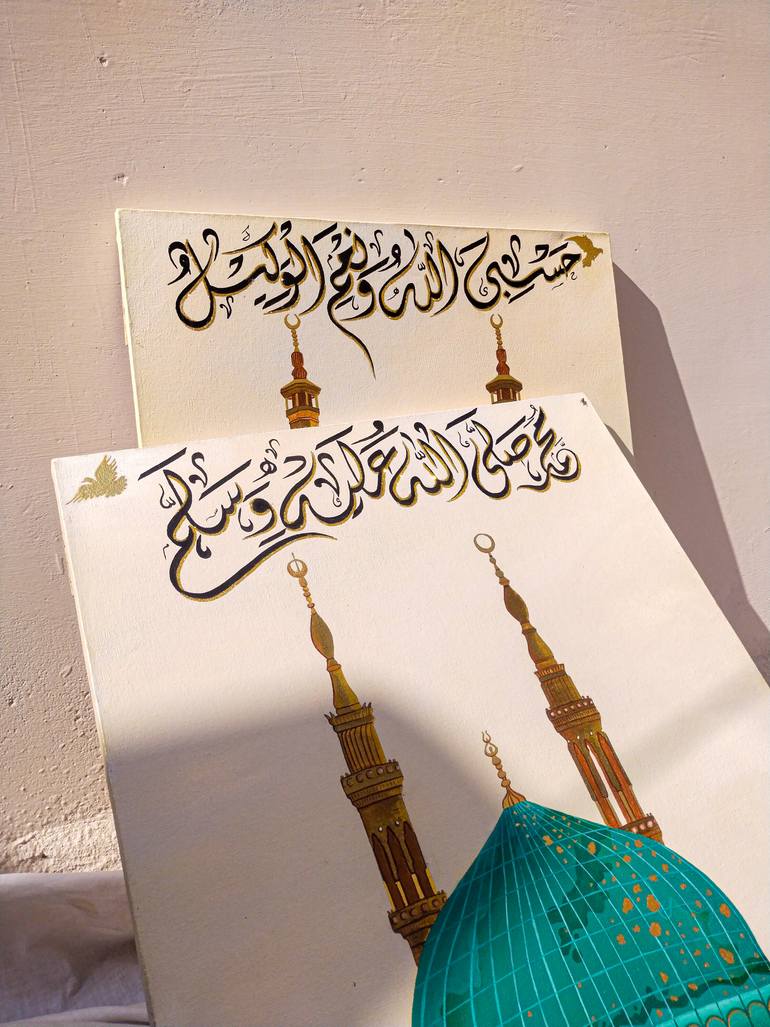 حَسْبِيَ اللّٰهُ وَنِعْمَ الْوَكِيْلُ
مُحَمَّد صَلَّى اللّٰه عَلَيْهِ وَسَلَّمَ